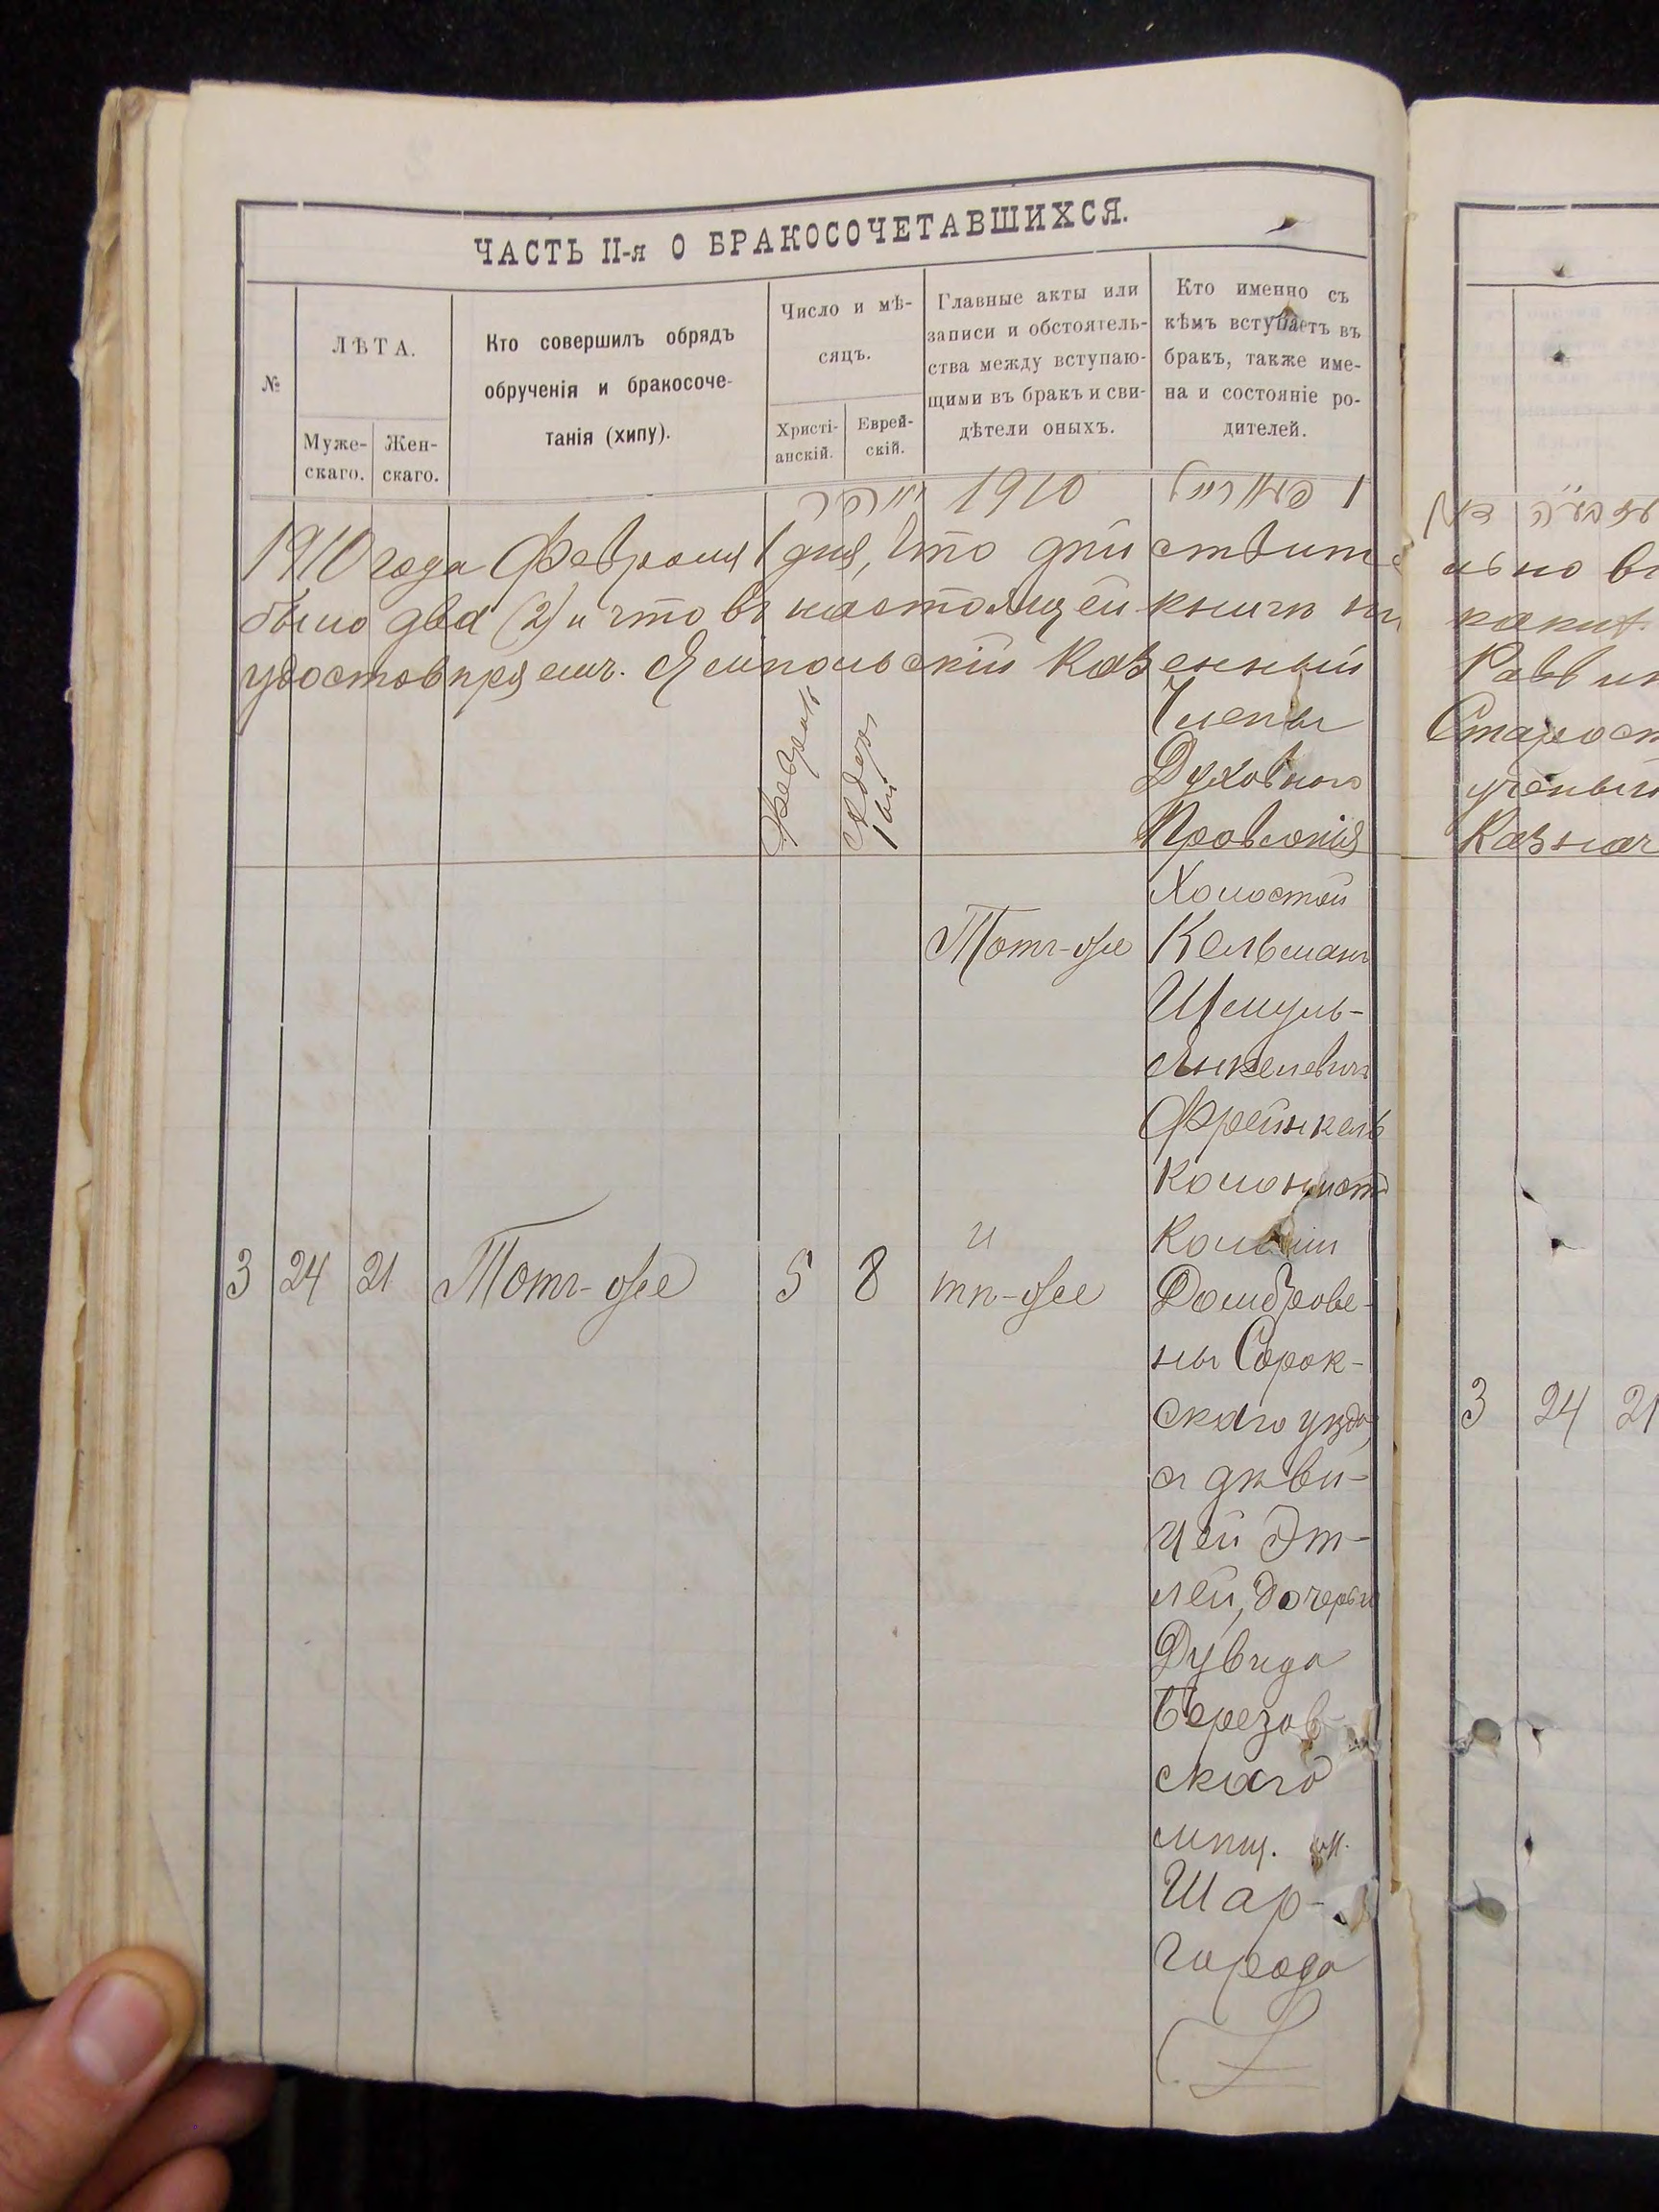 ЧАСТЬ II-я О БРАКОСОЧЕТАВШИХСЯ.
№
ЛѢТА.
Муже-
скаго.
Жен-
скаго.
Кто совершилъ обрядъ
обрученія и бракосоче-
танія (хипу).
Число и мѣ-
сяцъ.
Христі-
анскій.
Еврей-
скій.
Главные акты или
записи и обстоятель-
ства между вступаю-
щими въ бракъ и сви-
дѣтели оныхъ.
Кто именно съ
кѣмъ вступаетъ въ
бракъ, также име-
на и состояніе ро-
дителей.
1910 1
1910 года Февраля 1 дня, что дѣйствите
было два (2) и что въ настоящей книгѣ ни
удостовѣряемъ. Ямпольскій Казенный
Члены
Духовного
Правленія
Февраль
Адеръ
1ый
Холостой
Тотъ-же Кельманъ
Шмуль-
Янкелевичъ
Френкель
колонистъ
колоніи
3 24 21 Тотъ-же 5 8 и тѣ-же Домброве-
ны Сорок-
скаго уѣзда,
съ дѣви-
цей Эт-
лей, дочерью
Дувида
Березов-
скаго
мѣщ. м.
Шар-
города
льно въ
каких
Раввин
Старост
ученый
Казнач
3 24 21